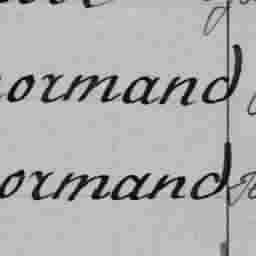 ormand
ormand